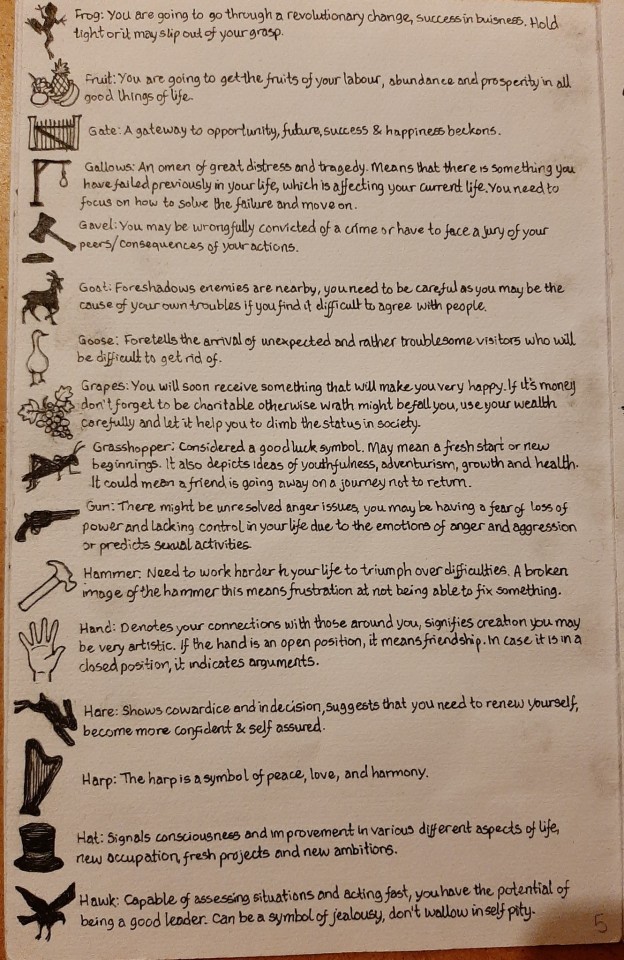 Frog: You are going to go through a revolutionary change, success in buisness. Hold
tight or it may slip out of your grasp.
Fruit: You are going to get the fruits of your labour, abundance and prosperity in all
good things of life.
Gate: A gateway to opportunity, future, success & happiness beckons.
Gallows: An omen of great distress and tragedy. Means that there is something you
have failed previously in your life, which is affecting your current life. You need to
focus on how to solve the failure and move on.
Gavel: You may be wrongfully convicted of a crime or have to face a jury of your
peers/consequences of your actions.
Goat: Foreshadows enemies are nearby, you need to be careful as you may be the
cause of your own troubles if you find it difficult to agree with people.
Goose: Foretells the arrival of unexpected and rather troublesome visitors who will
be difficult to get rid of.
Grapes: You will soon receive something that will make you very happy. If it's money
don't forget to be charitable otherwise wrath might befall you, use your wealth
carefully and let it help you to climb the status in society.
Grasshopper: Considered a good luck symbol. May mean a fresh start or new
beginnings. It also depicts ideas of youthfulness, adventurism, growth and health.
It could mean a friend is going away on a journey not to return.
Gun: There might be unresolved anger issues, you may be having a fear of loss of
power and lacking control in your life due to the emotions of anger and aggression
or predicts sexual activities.
Hammer: Need to work harder in your life to triumph over difficulties. A broken
image of the hammer this means frustration at not being able to fix something.
Hand: Denotes your connections with those around you, signifies creation you may
be very artistic. If the hand is an open position, it means friendship. In case it is in a
closed position, it indicates arguments.
Hare: Shows cowardice and indecision, suggests that you need to renew yourself,
become more confident & self assured.
Harp: The harp is a symbol of peace, love, and harmony.
Hat: Signals consciousness and improvement in various different aspects of life,
new occupation, fresh projects and new ambitions.
Hawk: Capable of assessing situations and acting fast, you have the potential of
being a good leader. Can be a symbol of jealousy, don't wallow in self pity.
5